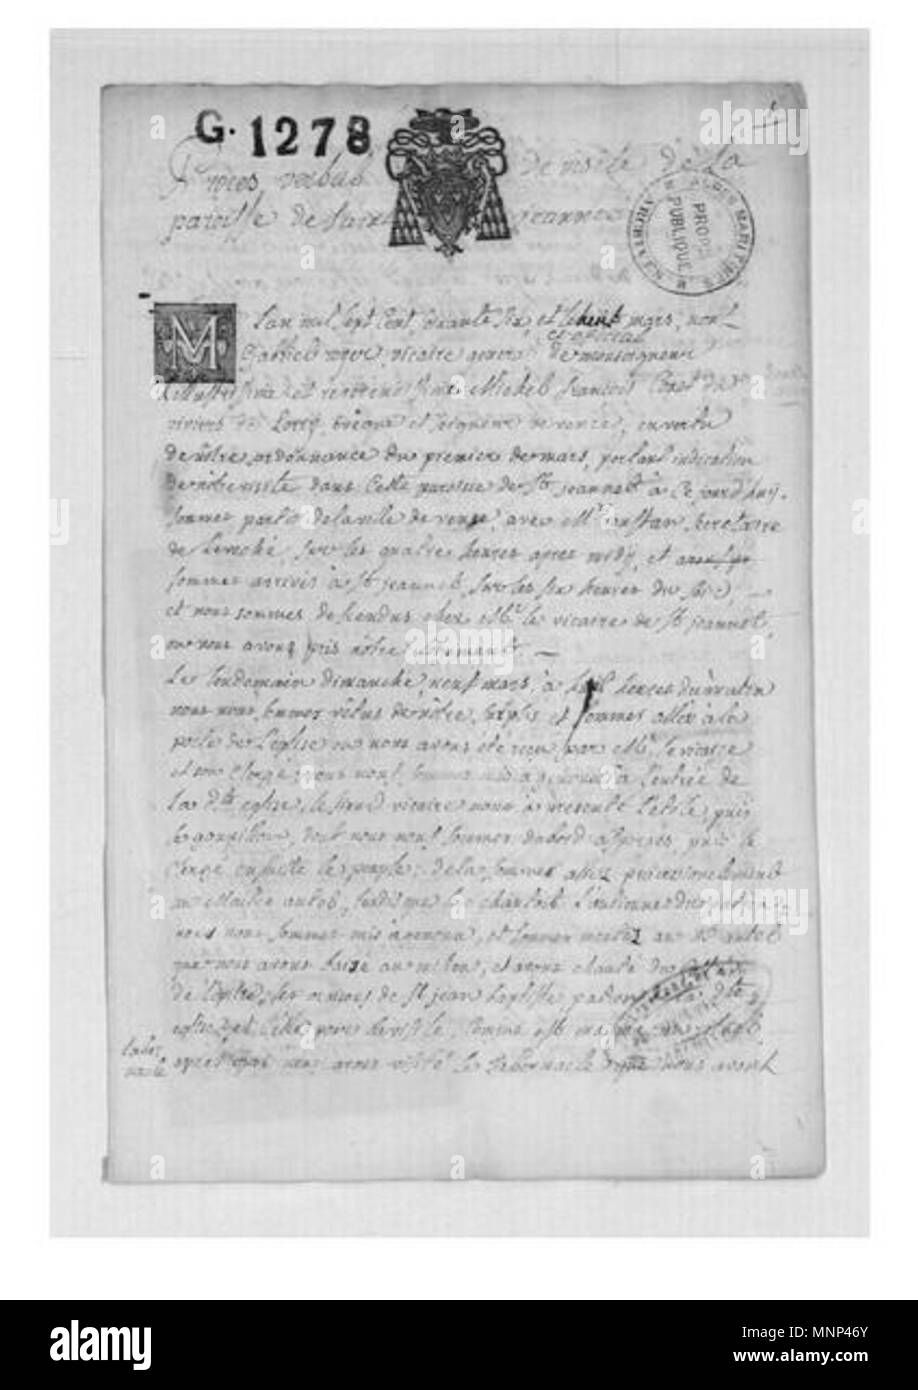 G. 1278
1
Procès verbal de visite de la
paroisse de Saint Jeannet
ARCHIVES ALPES MARITIMES
PROP. PUBLIQUE
L'an mil sept cent soixante six et le huit mars, nous
Gabriel vicaire general et official de monseigneur
Illustrissime et reverendissime Michel François Couet du
viviers de Lorry, Evêque et seigneur de vence, en vertu
de nôtre ordonnance du premier de mars, portant indication
de nôtre visite dans cette paroisse de St jeannet à ce jourd'huy,
sommes partis de la ville de vence, avec Mr. secretaire
de l'eveché, sur les quatre heures apres midy, et
sommes arrivés à St jeannet, sur les six heures du soir,
et nous sommes descendus chez Mr. le vicaire de St jeannet,
ou nous avons pris nôtre
Le lendemain dimanche, neuf mars, à huit heures du matin
nous nous sommes vêtus de nôtre surplis et sommes allez à la
porte de l'eglise ou nous avons été reçu par Mr. le vicaire
et son clergé, nous nous sommes mis à genoux à l'entrée de
la dte eglise, le sieur vicaire nous a presenté l'étole, puis
le goupillon, dont nous nous sommes d'abord aspersés, puis le
clergé ensuite le peuple; de la sommes allez processionelement
au Maitre autel, tandis que le
nous nous sommes mis à genoux, et sommes montez au dt autel
que nous avons baisé au milieu, et avons chanté du côté
de l'epitre, les oraisons de St jean baptiste patron de la dte
eglise, et
après quoi nous avons visité le tabernacle que nous avons
taber
nacle
alamy
Image ID: MNP46Y
www.alamy.com